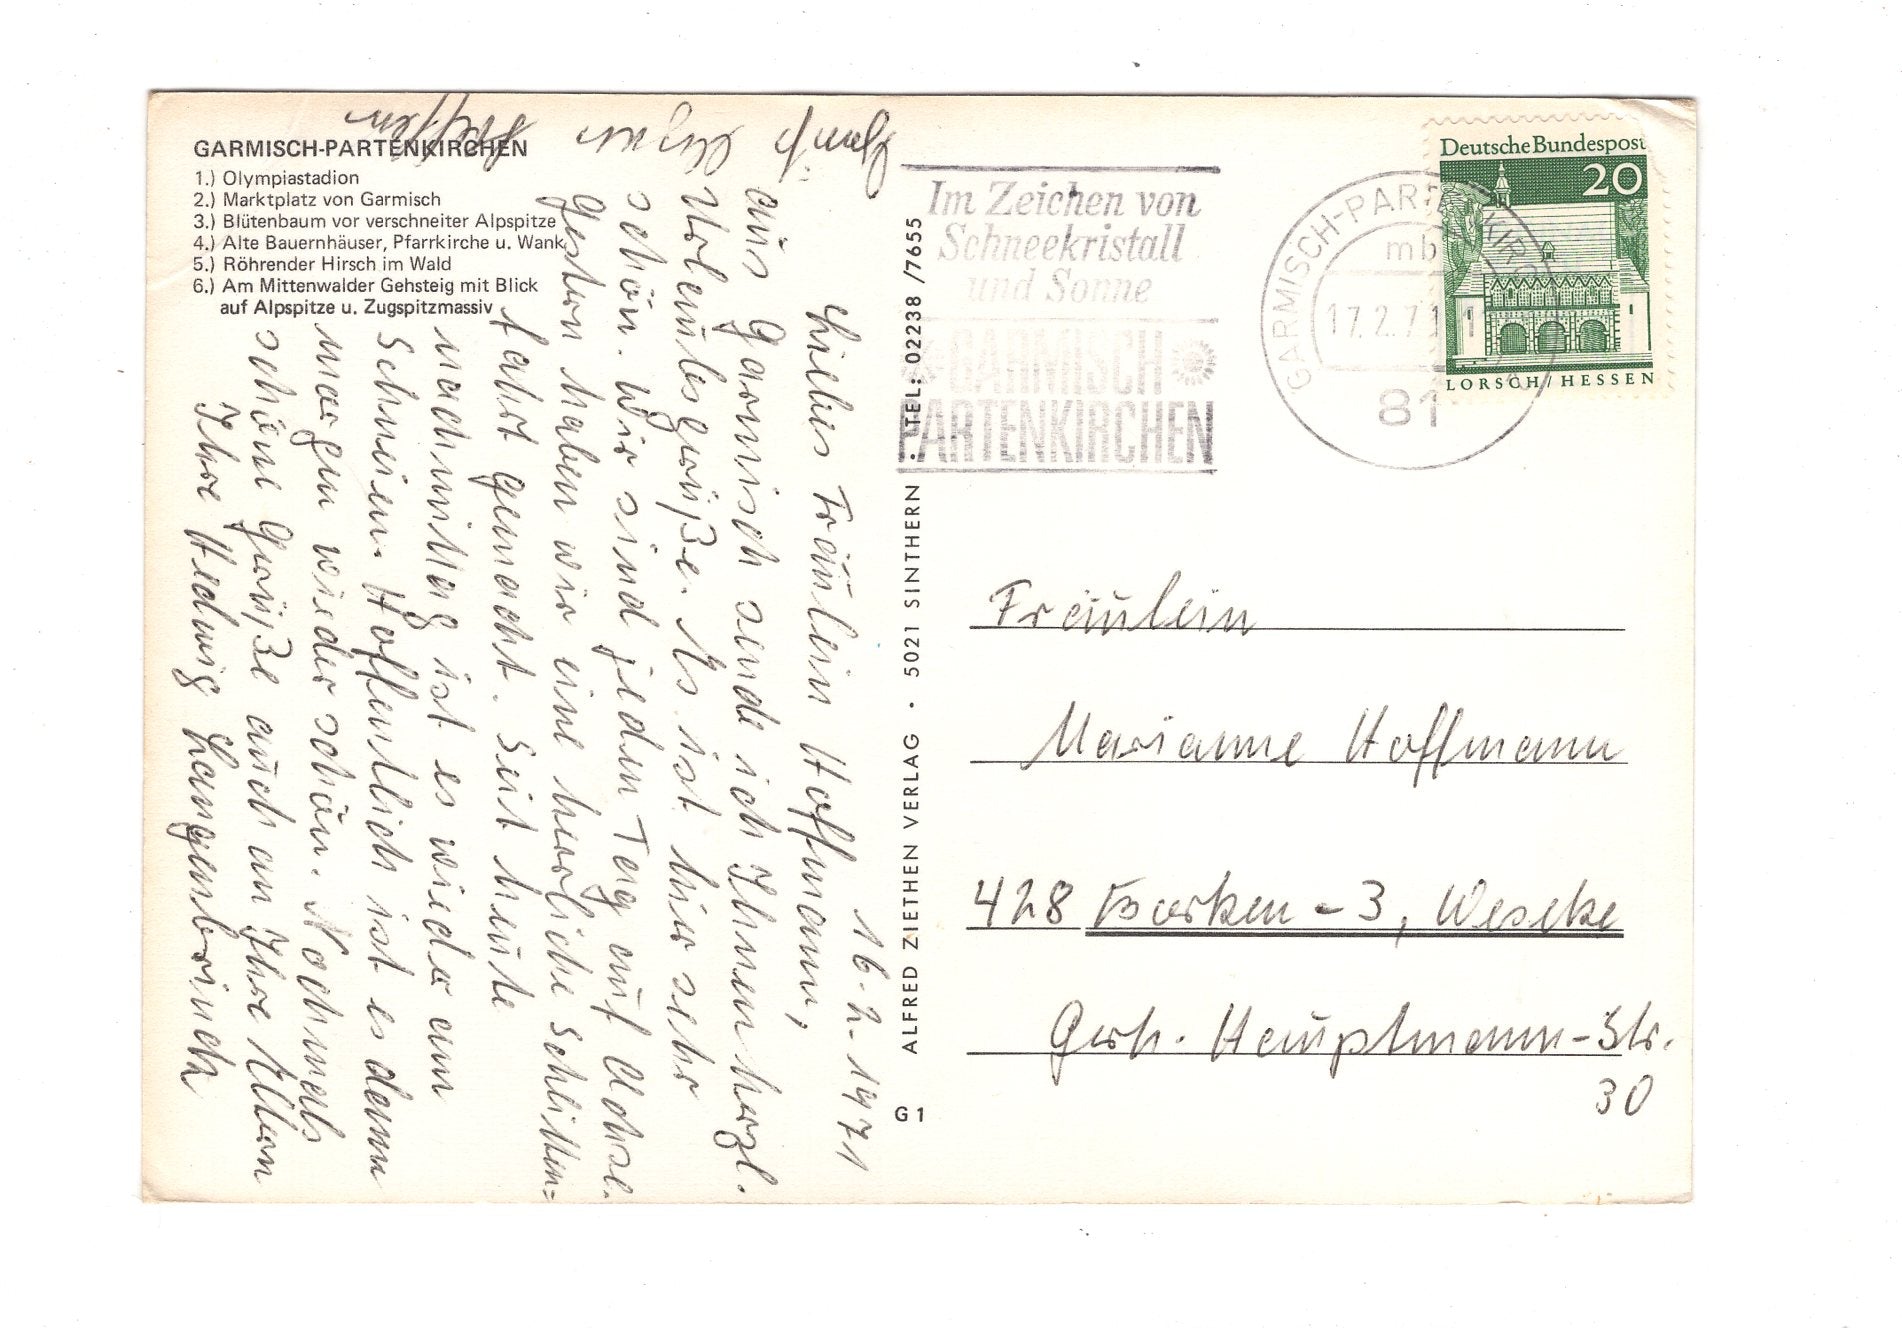 GARMISCH-PARTENKIRCHEN
1.) Olympiastadion
2.) Marktplatz von Garmisch
3.) Blütenbaum vor verschneiter Alpspitze
4.) Alte Bauernhäuser, Pfarrkirche u. Wank
5.) Röhrender Hirsch im Wald
6.) Am Mittenwalder Gehsteig mit Blick
auf Alpspitze u. Zugspitzmassiv
16.2.1971
Liebes Fräulein Hoffmann,
aus Garmisch sende ich Ihnen herzl.
Urlaubsgrüße. Es ist hier sehr
schön. Wir sind jeden Tag auf Achse.
Gestern haben wir eine herrliche Schlitten=
fahrt gemacht. Seit heute
nachmittag ist es wieder am
Schneien. Hoffentlich ist es dann
morgen wieder schön. Nochmals
schöne Grüße auch an Ihre Eltern
Ihre Hedwig Langenbrinck
ALFRED ZIETHEN VERLAG · 5021 SINTHERN : TEL: 02238 /7655
G 1
Im Zeichen von
Schneekristall
und Sonne
GARMISCH
PARTENKIRCHEN
GARMISCH-PARTENKIRCHEN
mb
17.2.71
81
Deutsche Bundespost
20
LORSCH/HESSEN
Fräulein
Marianne Hoffmann
428 Borken-3, Weseke
Gerh. Hauptmann-Str.
30